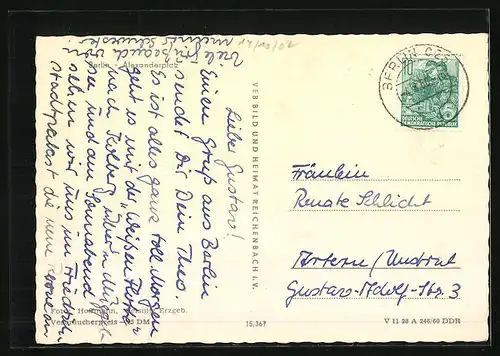 Berlin - Alexanderplatz
Liebe Gustav!
Einen Gruß aus Berlin
sendet Dir Dein Theo.
Es ist alles ganz toll. Morgen
geht es mit der „Weißen Flotte"
nach
see und am Sonnabend
sehen wir uns im Friedrich-
stadtpalast die neue
Viele Grüße auch von
meiner Schwester.
Foto: Hoffmann, Erzgeb.
Verbraucherpreis DM
VEB BILD UND HEIMAT REICHENBACH i. V.
15/367
BERLIN
10
DEUTSCHE
DEMOKRATISCHE REPUBLIK
Fräulein
Renate Schlicht
Artern/Unstrut
Gustav-Adolf-Str. 3
V 11 28 A 246/60 DDR